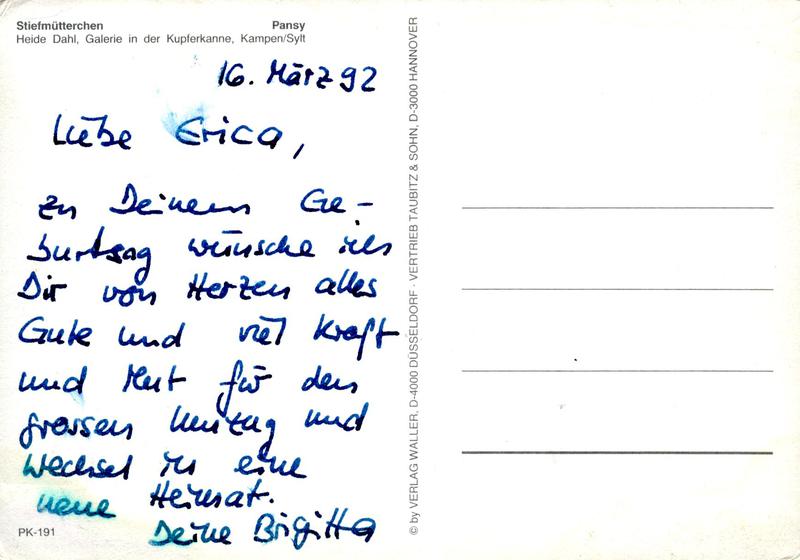 Stiefmütterchen Pansy
Heide Dahl, Galerie in der Kupferkanne, Kampen/Sylt
16. März 92
Liebe Erica,
zu Deinem Ge-
burtsag wünsche ich
Dir von Herzen alles
Gute und viel Kraft
und Mut für den
grossen Umzug und
Wechsel in eine
neue Heimat.
Deine Brigitta
PK-191
© by VERLAG WALLER, D-4000 DÜSSELDORF · VERTRIEB TAUBITZ & SOHN, D-3000 HANNOVER